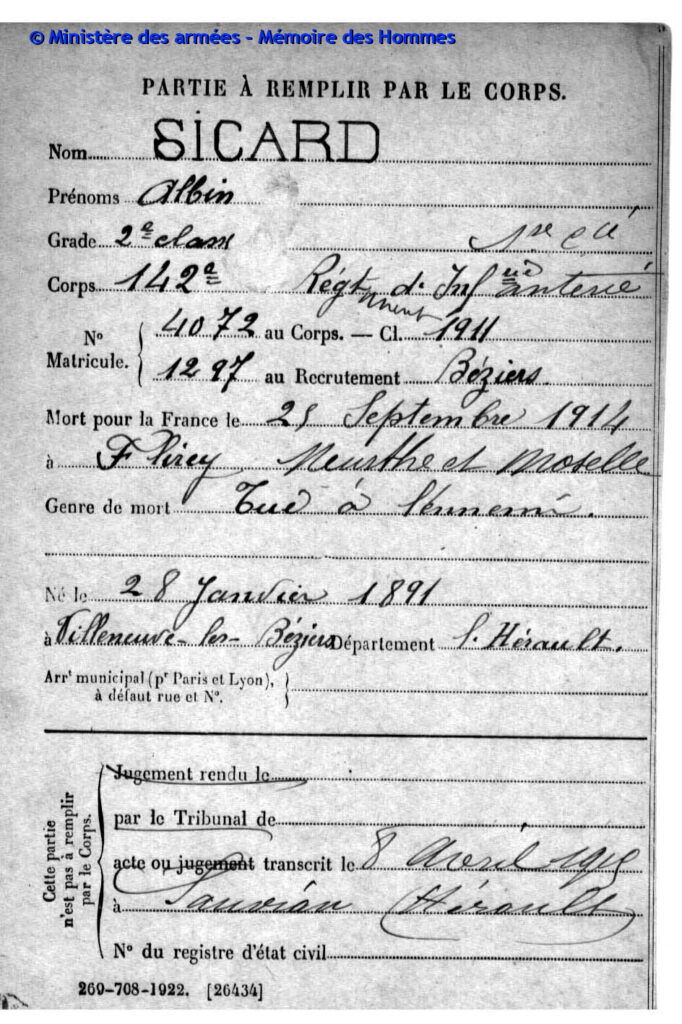 © Ministère des armées - Mémoire des Hommes
PARTIE À REMPLIR PAR LE CORPS.
Nom SICARD
Prénoms Albin
Grade 2e class 1re Cie
Corps 142e Régt d'Infanterie
No Matricule. 4072 au Corps. — Cl. 1911
1297 au Recrutement Béziers
Mort pour la France le 25 Septembre 1914
à Flirey Meurthe et Moselle
Genre de mort Tué à l'ennemi.
Né le 28 Janvier 1891
à Villeneuve-les-Béziers Département l'Hérault.
Arrt municipal (pr Paris et Lyon),
à défaut rue et No.
Cette partie
n'est pas à remplir
par le Corps.
Jugement rendu le
par le Tribunal de
acte ou jugement transcrit le 8 Avril 1915
à Sauvian (Hérault)
No du registre d'état civil
269-708-1922. [26434]